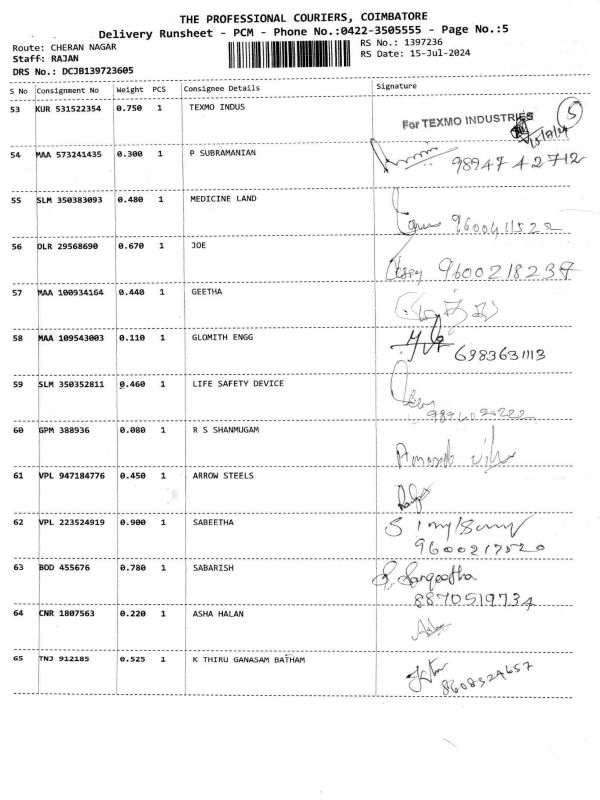 THE PROFESSIONAL COURIERS, COIMBATORE
Delivery Runsheet - PCM - Phone No.:0422-3505555 - Page No.:5
Route: CHERAN NAGAR
RS No.: 1397236
Staff: RAJAN
RS Date: 15-Jul-2024
DRS No.: DCJB139723605
S No Consignment No Weight PCS Consignee Details Signature
53 KUR 531522354 0.750 1 TEXMO INDUS
For TEXMO INDUSTRIES 5
15/7/24
54 MAA 573241435 0.300 1 P SUBRAMANIAN
98947 42712
55 SLM 350383093 0.480 1 MEDICINE LAND
9600411522
56 OLR 29568690 0.670 1 JOE
9600218237
57 MAA 100934164 0.440 1 GEETHA
58 MAA 109543003 0.110 1 GLOMITH ENGG
6983631113
59 SLM 350352811 0.460 1 LIFE SAFETY DEVICE
60 GPM 388936 0.080 1 R S SHANMUGAM
61 VPL 947184776 0.450 1 ARROW STEELS
62 VPL 223524919 0.900 1 SABEETHA
9600217520
63 BOD 455676 0.780 1 SABARISH
S. Sangeetha
8870519734
64 CNR 1807563 0.220 1 ASHA HALAN
65 TNJ 912185 0.525 1 K THIRU GANASAM BATHAM
8608324657